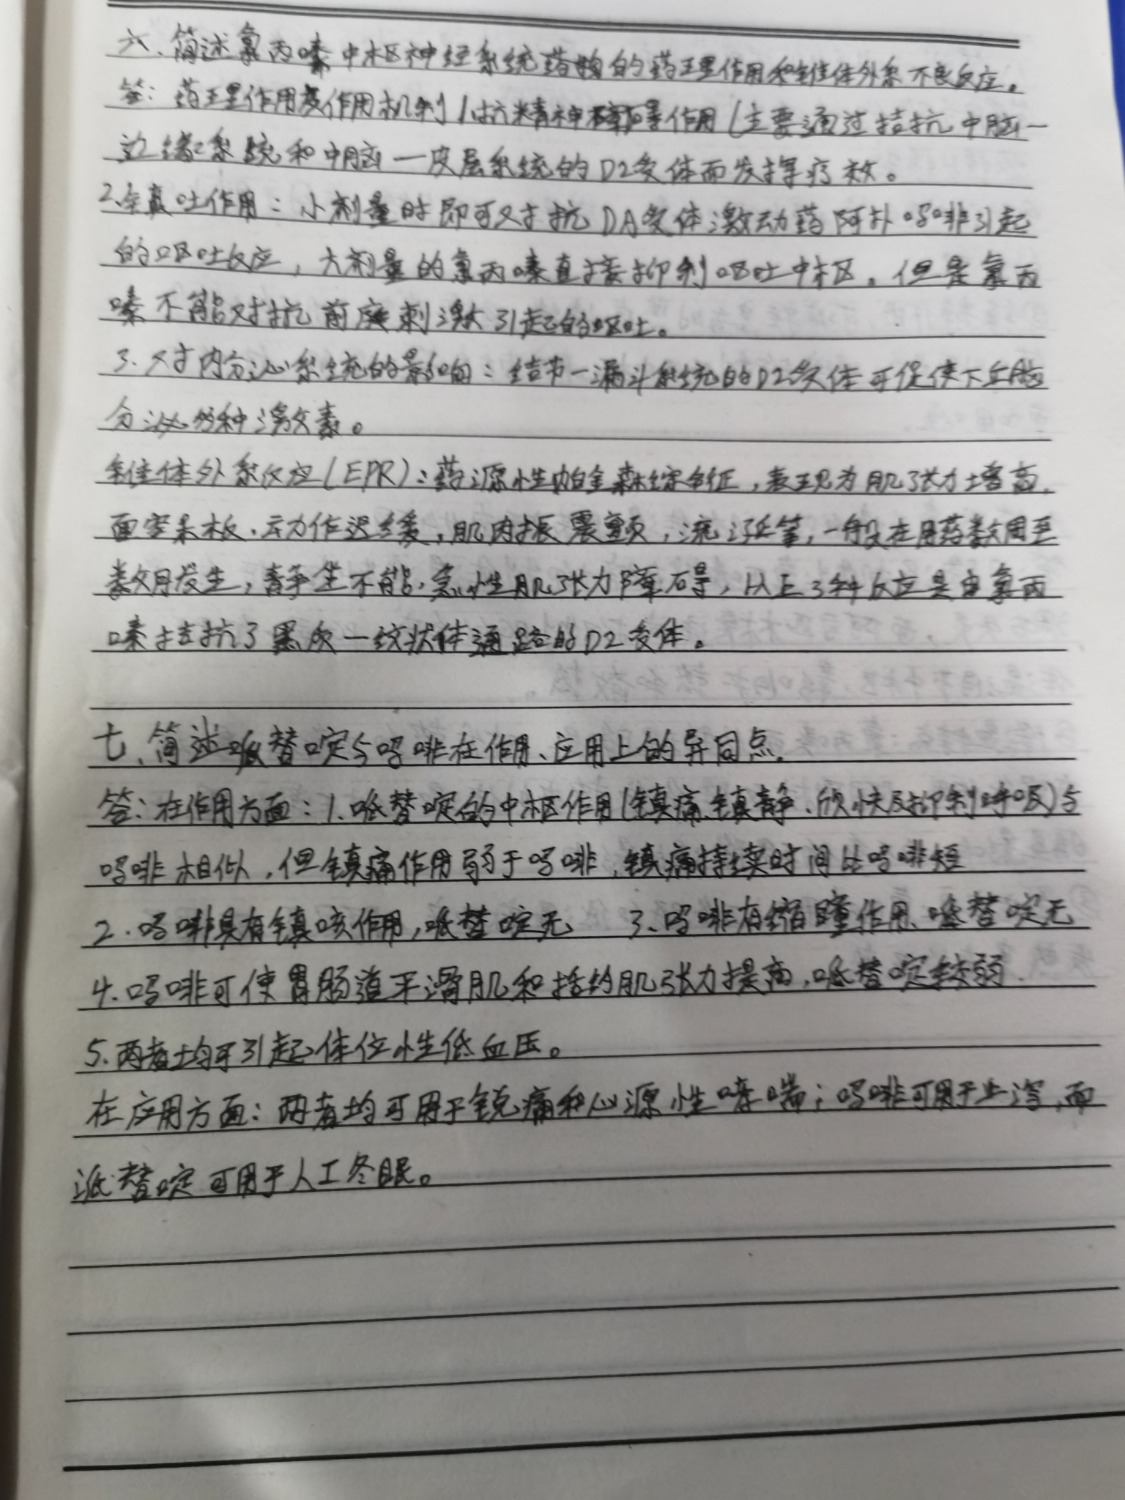 六、简述氯丙嗪中枢神经系统药物的药理作用和锥体外系不良反应。
答：药理作用及作用机制 1.抗精神障碍作用（主要通过拮抗中脑—
边缘系统和中脑—皮层系统的D2受体而发挥疗效。
2.镇吐作用：小剂量时即可对抗DA受体激动药阿扑吗啡引起
的呕吐反应，大剂量的氯丙嗪直接抑制呕吐中枢。但是氯丙
嗪不能对抗前庭刺激引起的呕吐。
3.对内分泌系统的影响：结节—漏斗系统的D2受体可促使下丘脑
分泌多种激素。
锥体外系反应（EPR）：药源性帕金森综合征，表现为肌张力增高，
面容呆板、动作迟缓，肌肉振震颤，流涎等，一般在用药数周至
数月发生，静坐不能，急性肌张力障碍，以上3种反应是由氯丙
嗪拮抗了黑质—纹状体通路的D2受体。
七、简述哌替啶与吗啡在作用、应用上的异同点。
答：在作用方面：1.哌替啶的中枢作用（镇痛、镇静、欣快及抑制呼吸）与
吗啡相似，但镇痛作用弱于吗啡，镇痛持续时间比吗啡短
2.吗啡具有镇咳作用，哌替啶无 3.吗啡有缩瞳作用、哌替啶无
4.吗啡可使胃肠道平滑肌和括约肌张力提高，哌替啶较弱.
5.两者均可引起体位性低血压。
在应用方面：两者均可用于锐痛和心源性哮喘；吗啡可用于止泻，而
哌替啶可用于人工冬眠。